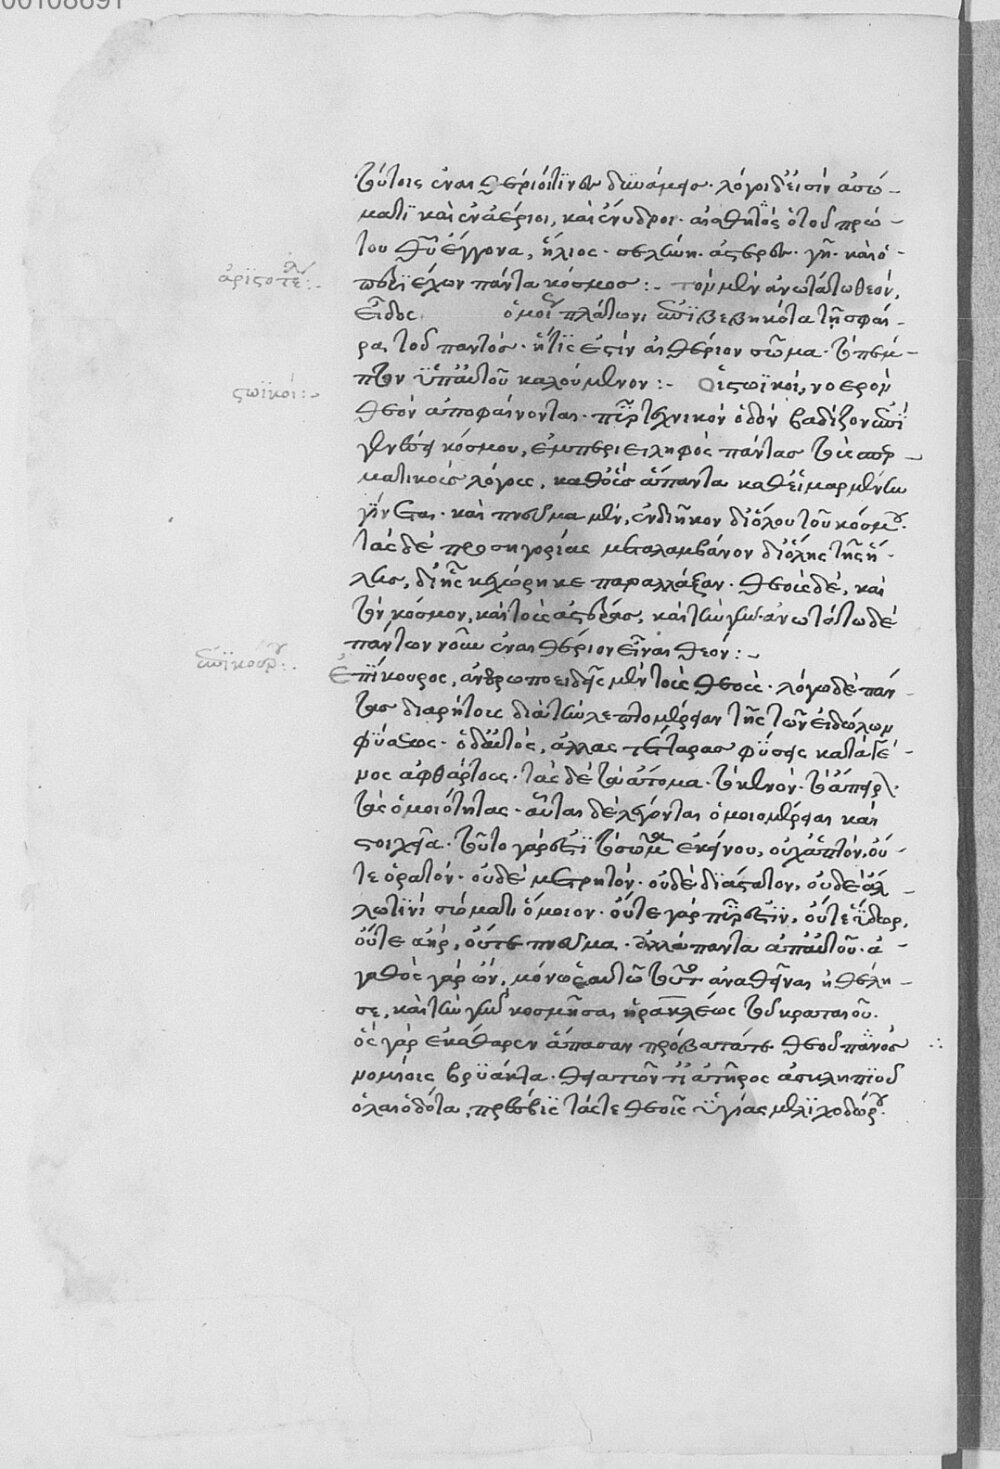 00108691
τούτοις ἐναιθέριοί τινες δυνάμεις· λόγοι δ' εἰσὶν ἀσώ-
ματοι καὶ ἐναέριοι, καὶ ἔνυδροι· αἰσθητὸς ὁ τοῦ πρώ-
του θεοῦ ἔγγονα, ἥλιος· σελήνη· ἀστέρες· γῆ· καὶ ὁ
περιέχων πάντα κόσμος:- τὸν μὲν ἀνωτάτω θεὸν,
ἀριστοτέλ:-
εἶδος ὁμοί πλάτωνι ἐπιβεβηκότα τῆ σφαί-
ρα τοῦ παντός· ἥτις ἐστὶν αἰθέριον σῶμα· τὸ πέμ-
πτον ὑπ' αὐτοῦ καλούμενον:- Οἱ στωϊκοί, νοερὸν
στωϊκοί:-
θεὸν ἀποφαίνονται· πῦρ τεχνικὸν ὁδὸν βαδίζον ἐπὶ
γενέσει κόσμου, ἐμπεριειληφὸς πάντας τοὺς σπερ-
ματικοὺς λόγους, καθ' οὓς ἅπαντα καθ' εἱμαρμένην
γίνεται· καὶ πνεῦμα μὲν, ἐνδιῆκον δι' ὅλου τοῦ κόσμου·
τὰς δὲ προσηγορίας μεταλαμβάνον δι' ὅλης τῆς ὕ-
λης, δι' ἧς κεχώρηκε παραλλάξαν· θεοὺς δὲ, καὶ
τὸν κόσμον, καὶ τοὺς ἀστέρας, καὶ τὴν γῆν· ἀνωτάτω δὲ
πάντων νοῦν ἐναιθέριον εἶναι θεόν:-
ἐπικούρ:-
Ἐπίκουρος, ἀνθρωποειδεῖς μὲν τοὺς θεούς· λόγω δὲ πάν-
τας διαρήτους διὰ τὴν λεπτομέρειαν τῆς τῶν εἰδώλων
φύσεως· ὁ δ' αὐτὸς, ἄλλας τέτταρας φύσεις κατὰ γέ-
νος ἀφθάρτους· τὰς δὲ τὰ ἄτομα· τὸ κενόν· τὸ ἄπειρ·
τὰς ὁμοιότητας· αὗται δὲ λέγονται ὁμοιομέρειαι καὶ
στοιχεῖα· τοῦτο γάρ ἐστι τὸ σῶμα ἐκείνου, οὐχ ἁπτὸν, οὔ-
τε ὁρατὸν· οὐδὲ μετρητόν· οὐδὲ διάστατον, οὐδὲ ἄλ-
λω τινὶ σώματι ὅμοιον· οὔτε γὰρ πῦρ ἐστιν, οὔτε ὕδωρ,
οὔτε ἀὴρ, οὔτε πνεῦμα· ἀλλὰ πάντα ἀπ' αὐτοῦ· ἀ-
γαθὸς γὰρ ὤν, μόνως αὐτῶ ἀναθεῖναι ἠθέλη-
σε, καὶ τὴν γῆν κοσμῆσαι ἡρακλέως τοῦ κραταιοῦ.
ὃς γὰρ ἐκάθαρεν ἅπασαν πρόβατά τε θεοῦ πανὸς
νομίοις βρύακτα· θεατῶν ἀσκληπιοῦ
ὀλβιοδότα, πρέσβις τάς τε θεοῖς ὑγίας μειλιχοδώρου.